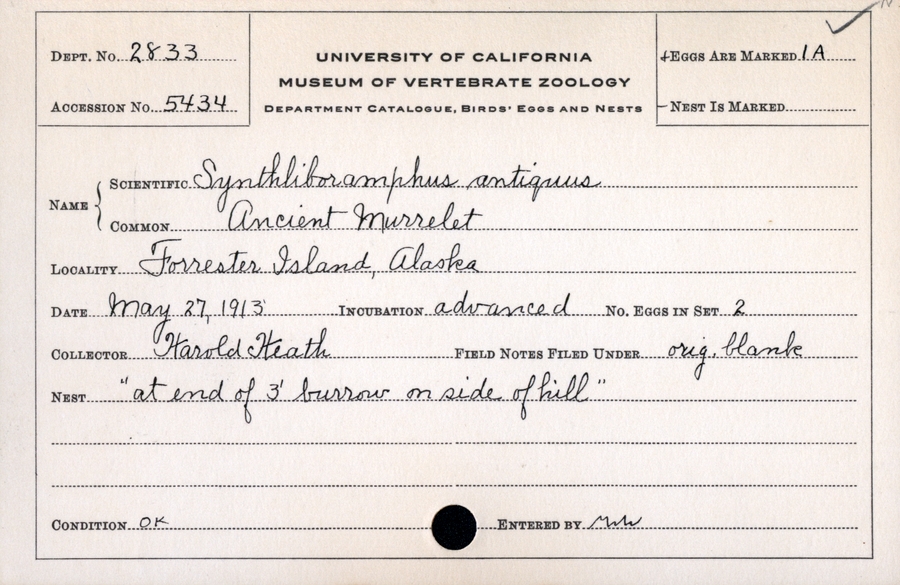 Dept. No. 2833
University of California
Museum of Vertebrate Zoology
Department Catalogue, Birds' Eggs and Nests
Eggs Are Marked 1A
Accession No. 5434
Nest Is Marked
Name
Scientific Synthliboramphus antiquus
Common Ancient Murrelet
Locality Forrester Island, Alaska
Date May 27, 1913 Incubation advanced No. Eggs in Set 2
Collector Harold Heath Field Notes Filed Under orig. blank
Nest "at end of 3' burrow on side of hill"
Condition OK Entered by